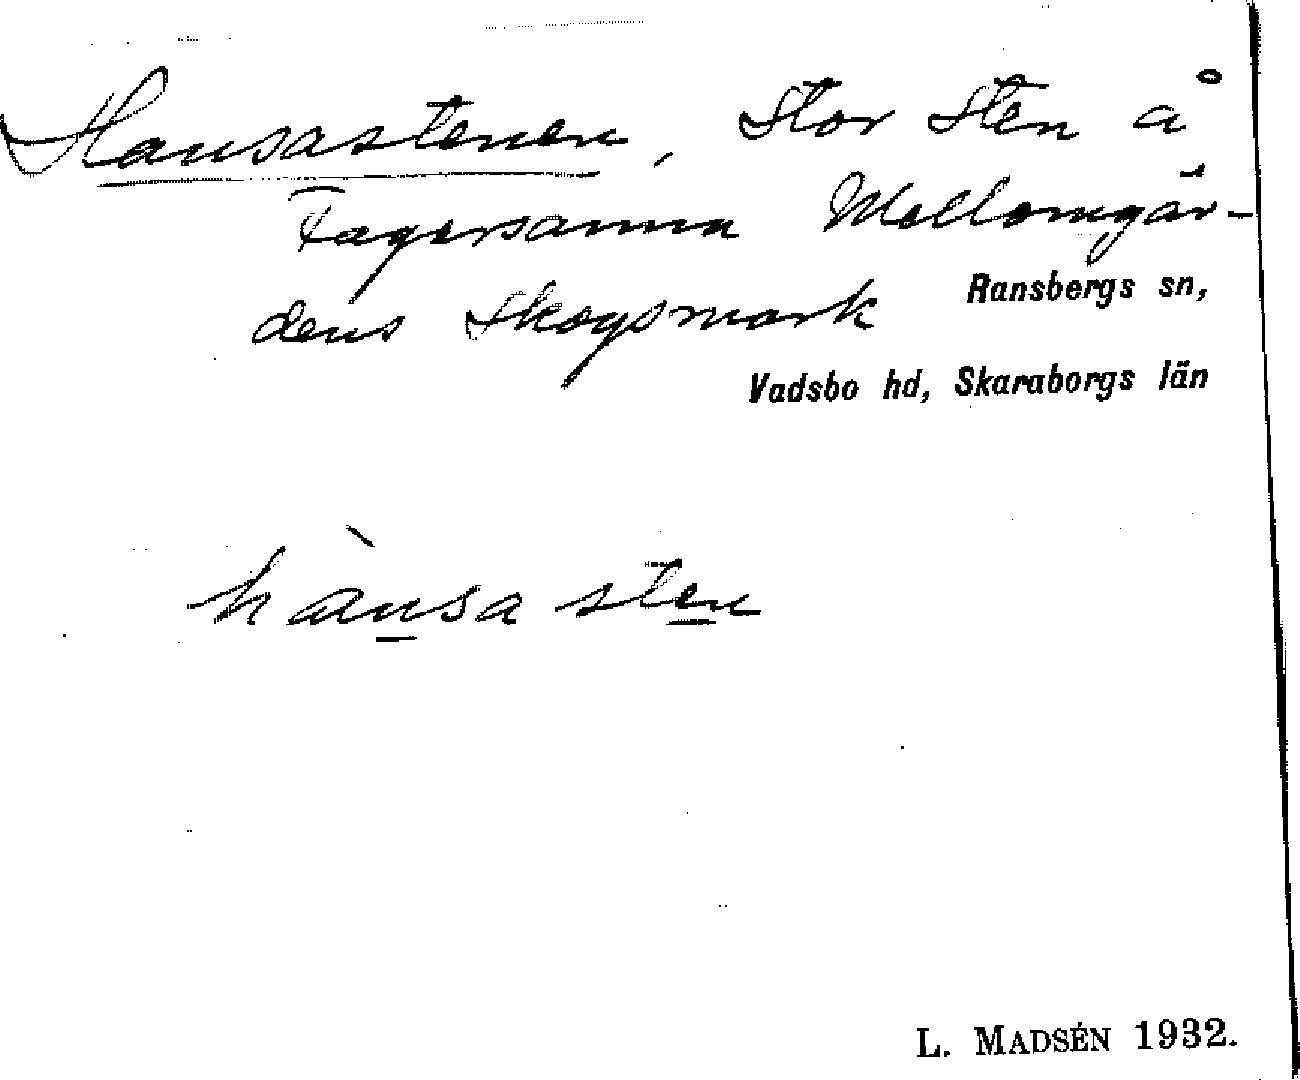 Hansastenen, Stor Sten å
Fagersanna Mellomgår-
dens Skogsmark
Ransbergs sn,
Vadsbo hd, Skaraborgs län
hànsa sten
L. MADSÉN 1932.